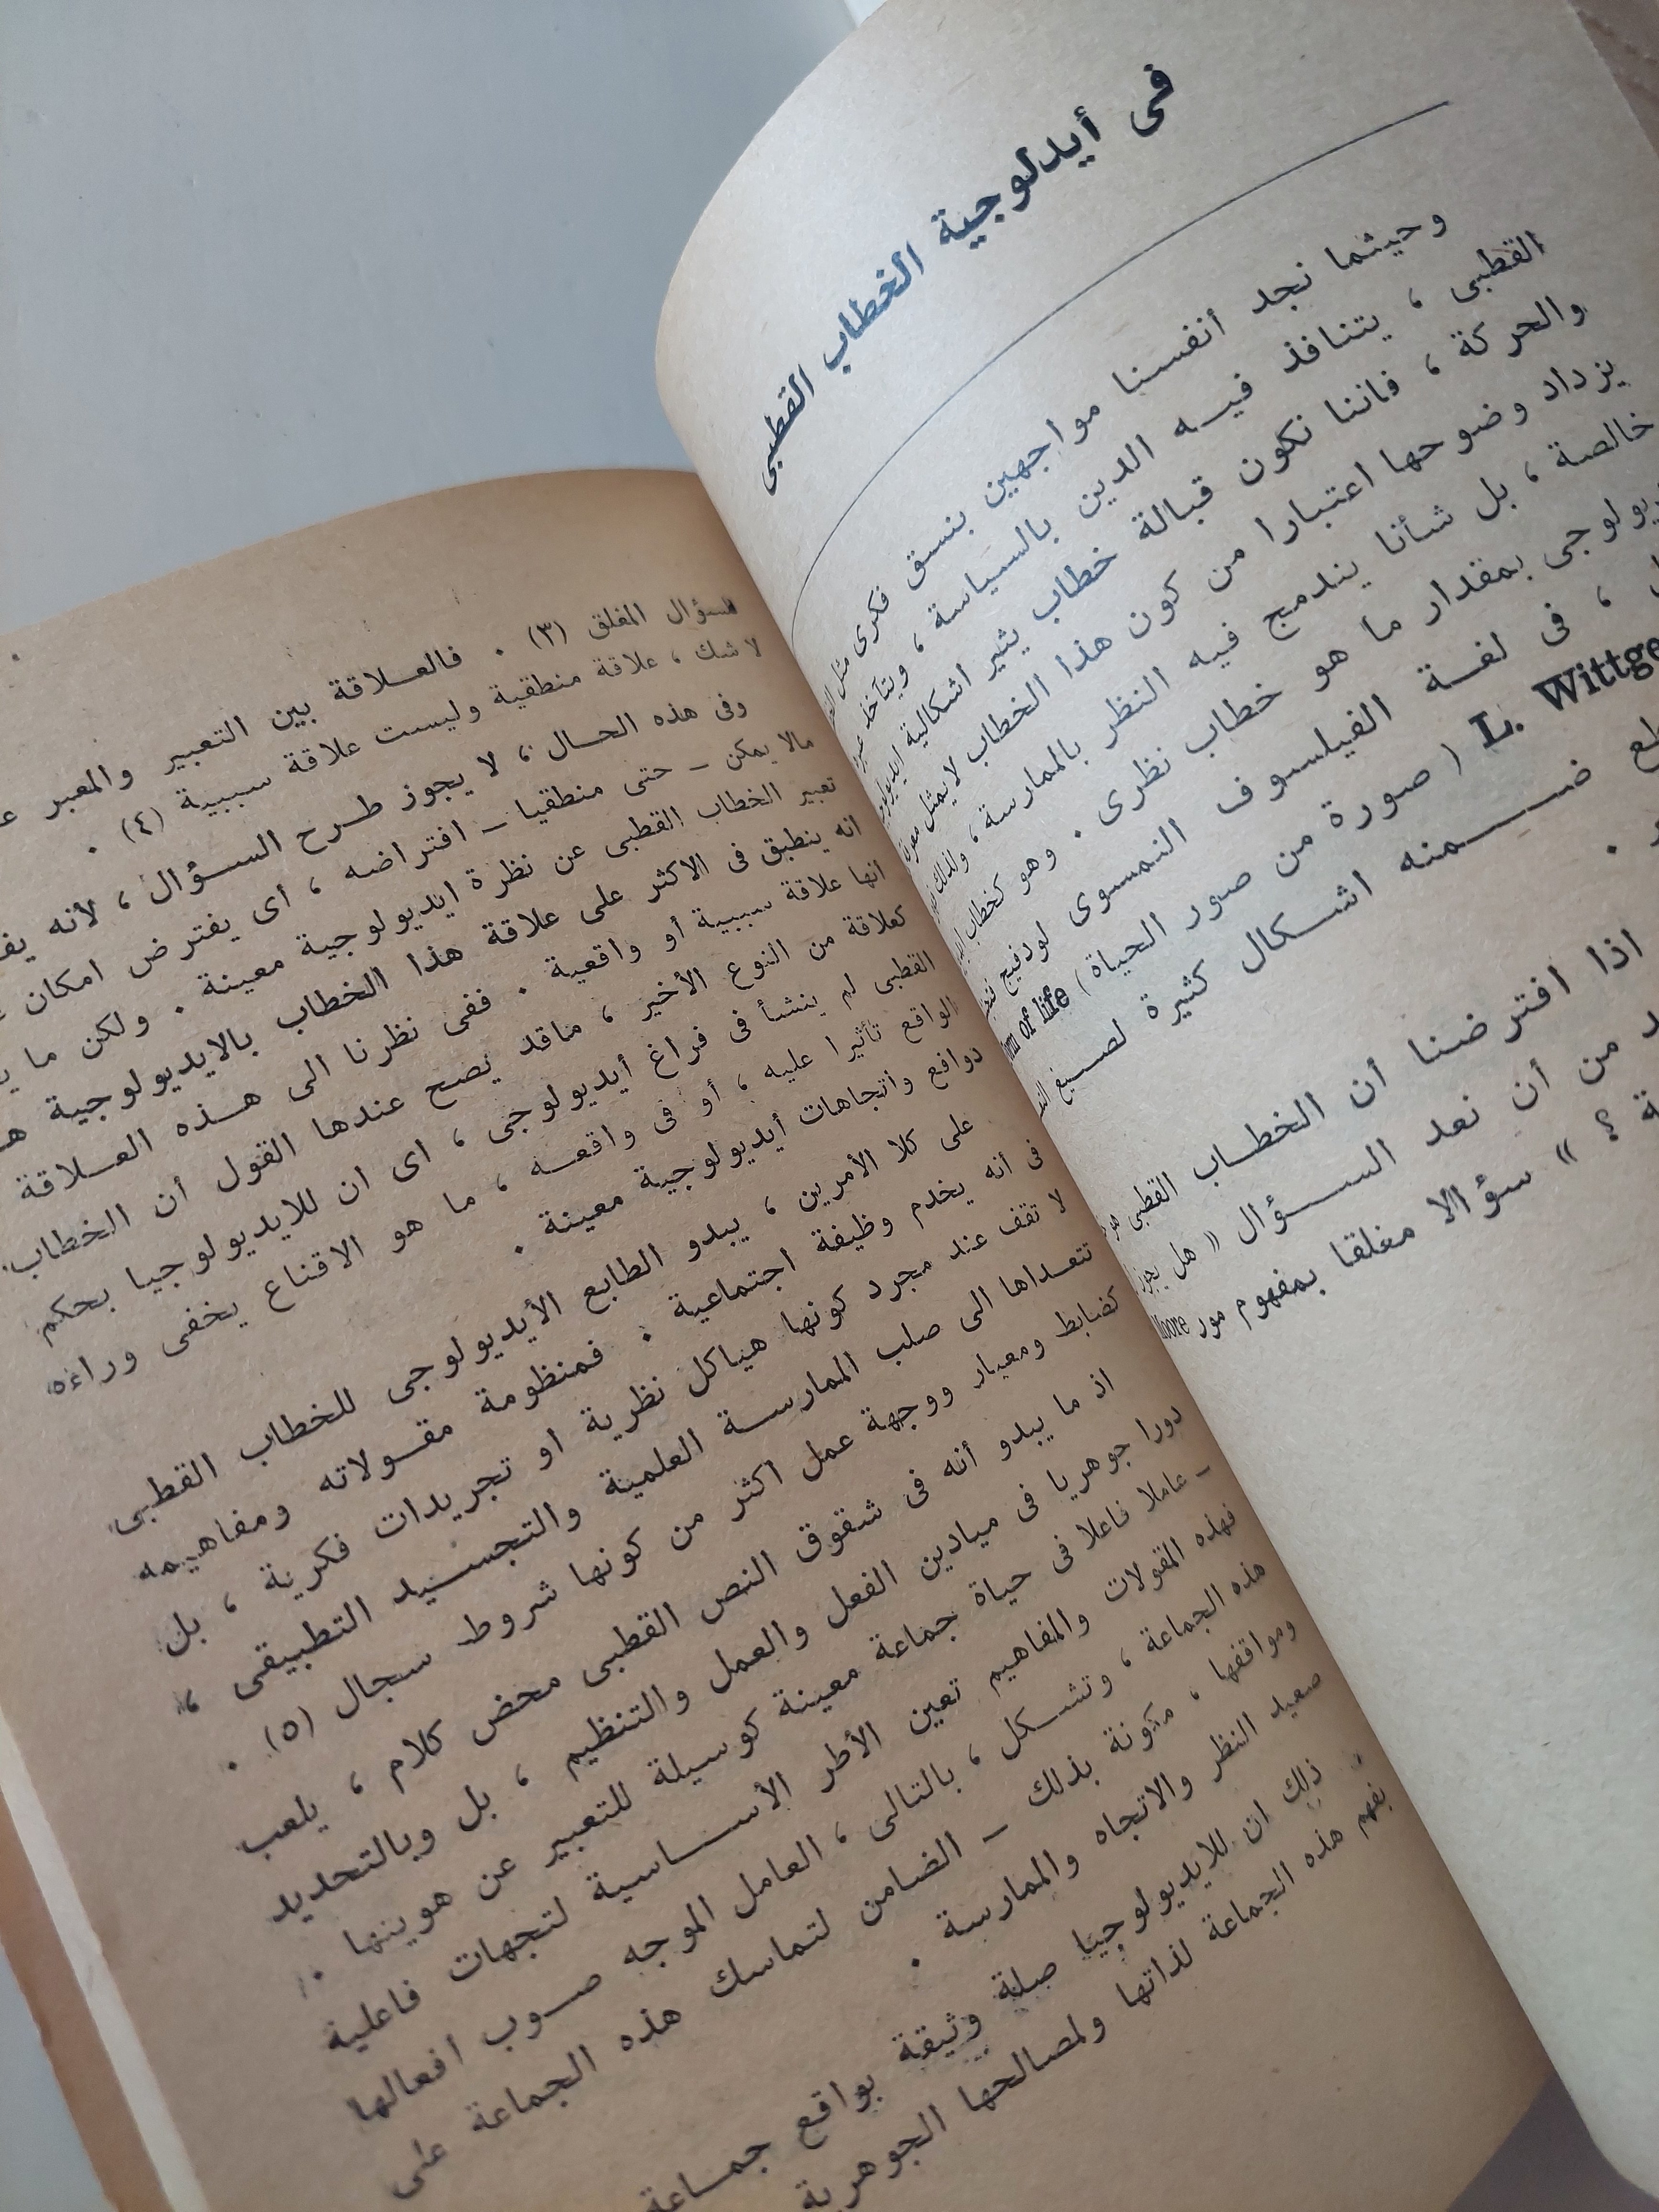 فى أيدلوجية الخطاب القطبى
وحيثما نجد أنفسنا مواجهين بنسق فكرى مثل
القطبى ، يتنافذ فيه الدين بالسياسة ، ويتآخذ
والحركة ، فاننا نكون قبالة خطاب يثير اشكالية
يزداد وضوحها اعتبارا من كون هذا الخطاب لا يمثل
خالصة ، بل شأنا يندمج فيه النظر بالممارسة ، ولذلك
بمقدار ما هو خطاب نظرى . وهو كخطاب
، فى لغة الفيلسوف النمسوى لودفيج
L. ( صورة من صور الحياة ) of life
ضمنه اشكال كثيرة لصنع
اذا افترضنا أن الخطاب القطبى
من أن نعد السؤال « هل يجوز
؟ » سؤالا مغلقا بمفهوم مور Moore
للسؤال المغلق (٣) . فالعلاقة بين التعبير والمعبر
لا شك ، علاقة منطقية وليست علاقة سببية (٤) .
وفى هذه الحال ، لا يجوز طرح السؤال ، لأنه
مالا يمكن – حتى منطقيا – افتراضه ، أى يفترض امكان
تعبير الخطاب القطبى عن نظرة ايديولوجية معينة . ولكن ما
انه ينطبق فى الاكثر على علاقة هذا الخطاب بالايديولوجية
انها علاقة سببية أو واقعية . ففى نظرنا الى هذه العلاقة
كعلاقة من النوع الأخير ، ماقد يصح عندها القول أن الخطاب
القطبى لم ينشأ فى فراغ أيديولوجى ، اى ان للايديولوجيا بحكم
الواقع تأثيرا عليه ، أو فى واقعه ، ما هو الاقناع يخفى وراءه
دوافع واتجاهات أيديولوجية معينة .
على كلا الأمرين ، يبدو الطابع الأيديولوجى للخطاب القطبى
فى أنه يخدم وظيفة اجتماعية . فمنظومة مقولاته ومفاهيمه
لا تقف عند مجرد كونها هياكل نظرية او تجريدات فكرية ، بل
تتعداها الى صلب الممارسة العلمية والتجسيد التطبيقى ،
كضابط ومعيار ووجهة عمل اكثر من كونها شروط سجال (٥) .
اذ ما يبدو أنه فى شقوق النص القطبى محض كلام ، يلعب
دورا جوهريا فى ميادين الفعل والعمل والتنظيم ، بل وبالتحديد
– عاملا فاعلا فى حياة جماعة معينة كوسيلة للتعبير عن هويتها .
فهذه المقولات والمفاهيم تعين الأطر الأساسية لتجهات فاعلية
هذه الجماعة ، وتشكل ، بالتالى ، العامل الموجه صوب افعالها
ومواقفها ، مكونة بذلك – الضامن لتماسك هذه الجماعة على
صعيد النظر والاتجاه والممارسة .
ذلك ان للايديولوجيا صلة وثيقة بواقع جماعة
بفهم هذه الجماعة لذاتها ولمصالحها الجوهرية